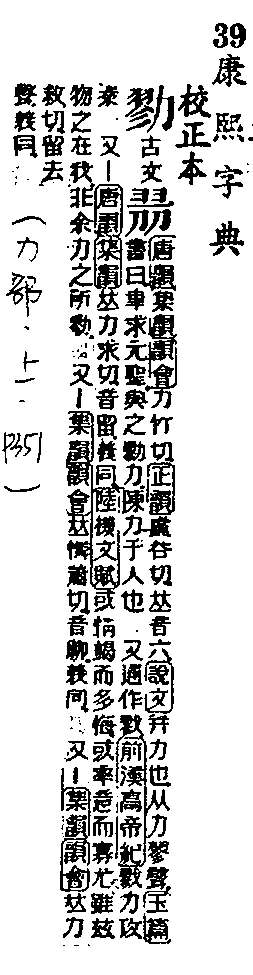 39
康熙字典
校正本
勠
古文
唐韻集韻韻會力竹切正韻盧谷切𠀤音六說文幷力也从力翏聲玉篇
書曰聿求元聖與之勠力陳力于人也 又通作戮前漢高帝紀戮力攻
秦 又丨唐韻集韻𠀤力求切音留義同陸機文賦或情竭而多悔或率意而寡尤雖茲
物之在我非余力之所勠 又丨集韻韻會𠀤憐蕭切音聊義同 又丨集韻韻會𠀤力
救切留去
聲義同
(力部·上一·